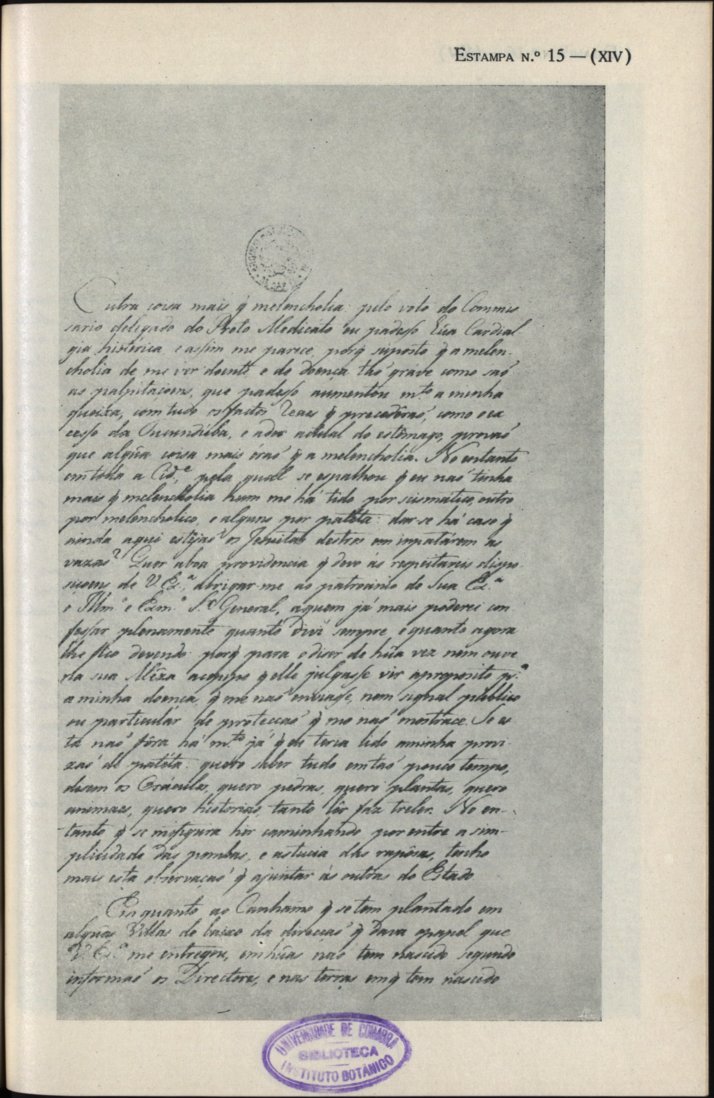 ESTAMPA N.º 15 — (XIV)
Outra coisa mais q̃ melancholia pelo voto do Commis
sario delegado do Proto Medicato eu padesso
histérica, e assim me parece, porq̃ suposto q̃ a melan-
cholia de me ver doente, e de doença tão grave como são
as palpitaçoens, que padesso aumentou m.to a minha
queixa, com tudo os factos q̃ precedêrão, como o ex
cesso da Ucuuba, e a dor actual do estômago, provão
que algũa coisa mais erão q̃ a melancholia. No entanto
em toda a Cid.e, pela qual se espalhou q̃ eu não tinha
mais q̃ melancholia hum me há tido por scismatico, outro
por melancholico, e alguns por patéta: dar-se há caso q̃
ainda aqui estejão os Jesuitas destros em
vazas? Quer abra providencia q̃ devo as respeitaveis dispo
siçoens de V. Ex.a abrigar-me ao patrocinio de Sua Ex.a
o Illm.º e Exm.º S.r General, a quem já mais poderei con
fessar plenamente quanto devi sempre e quanto agora
lhe fico devendo: porq̃ para o dizer de hũa vez nem ouve
na sua Mêza q̃ elle julgasse vir aproposito p.a
a minha doença q̃ me não enviasse, nem signal público
ou particular de protecção q̃ me não mostrace. Se es
ta não fôra há m.to já q̃ eu teria tido a minha provi
zão de patéta: quero saber tudo em tão pouco tempo,
dizem os Oráculos, quero pedras, quero plantas, quero
animaes, quero historias, tanto lêr faz treler. No en-
tanto q̃ se mefigura hir caminhando por entre a sim-
plicidade das pombas, e astucia das rapôzas, tenho
mais esta observação q̃ ajuntar ás outras do Estado
Em quanto ao Canhamo q̃ se tem plantado em
algũas Villas de baixo da direcção q̃ dava o papel que
V. Ex.a me entregou, em hũas não tem nascido segundo
informão os Directores, e nas terras em q̃ tem nascido
UNIVERSIDADE DE COIMBRA
BIBLIOTECA
INSTITUTO BOTÁNICO